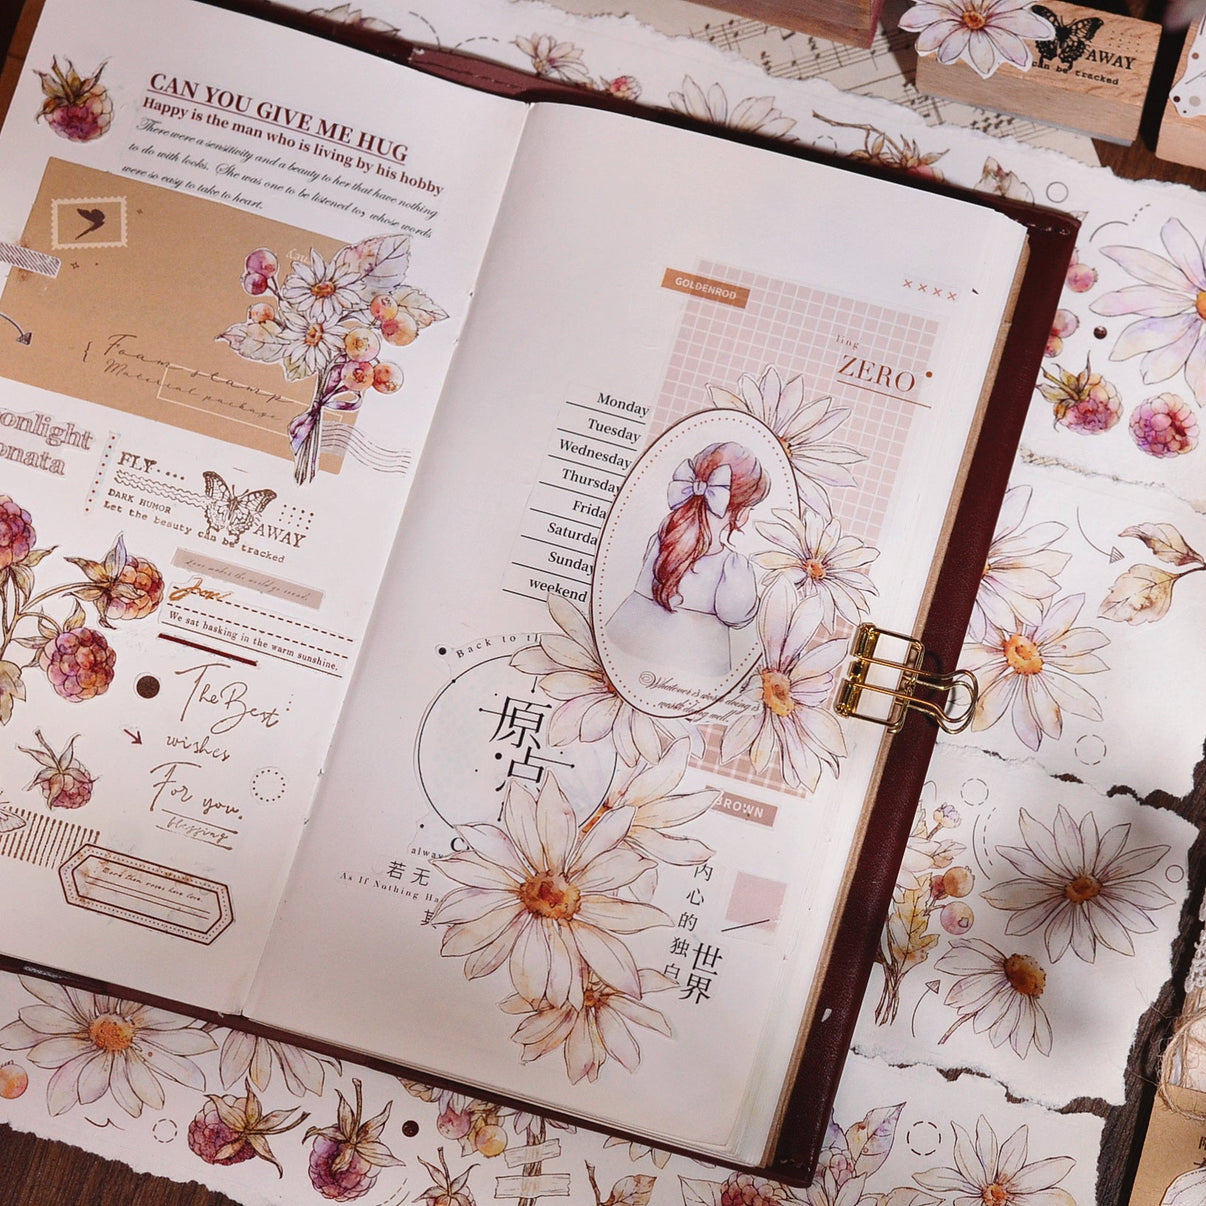 CAN YOU GIVE ME HUG
Happy is the man who is living by his hobby
There were a sensitivity and a beauty to her that have nothing
to do with looks. She was one to be listened to, whose words
were so easy to take to heart.
Foam stamp
Material package
onlight
onata
FLY....
DARK HUMOR
AWAY
Let the beauty can be tracked
Love makes the world go round.
We sat basking in the warm sunshine.
The Best
wishes
For you.
blessing
GOLDENROD
××××
ling
ZERO
Monday
Tuesday
Wednesday
Thursday
Frida
Saturda
Sunday
weekend
Whatever is worth doing is
worth doing well.
Back to th
原点
BROWN
alway
若无
As If Nothing Ha
其
内心的独白
世界
AWAY
can be tracked